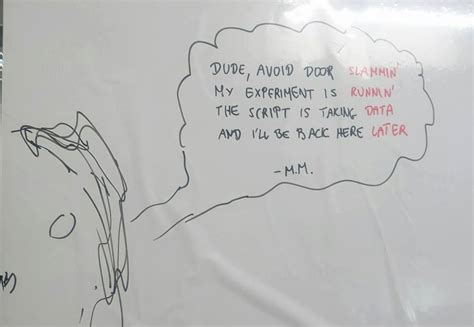 DUDE, AVOID DOOR SLAMMIN'
MY EXPERIMENT IS RUNNIN'
THE SCRIPT IS TAKING DATA
AND I'LL BE BACK HERE LATER
-M.M.